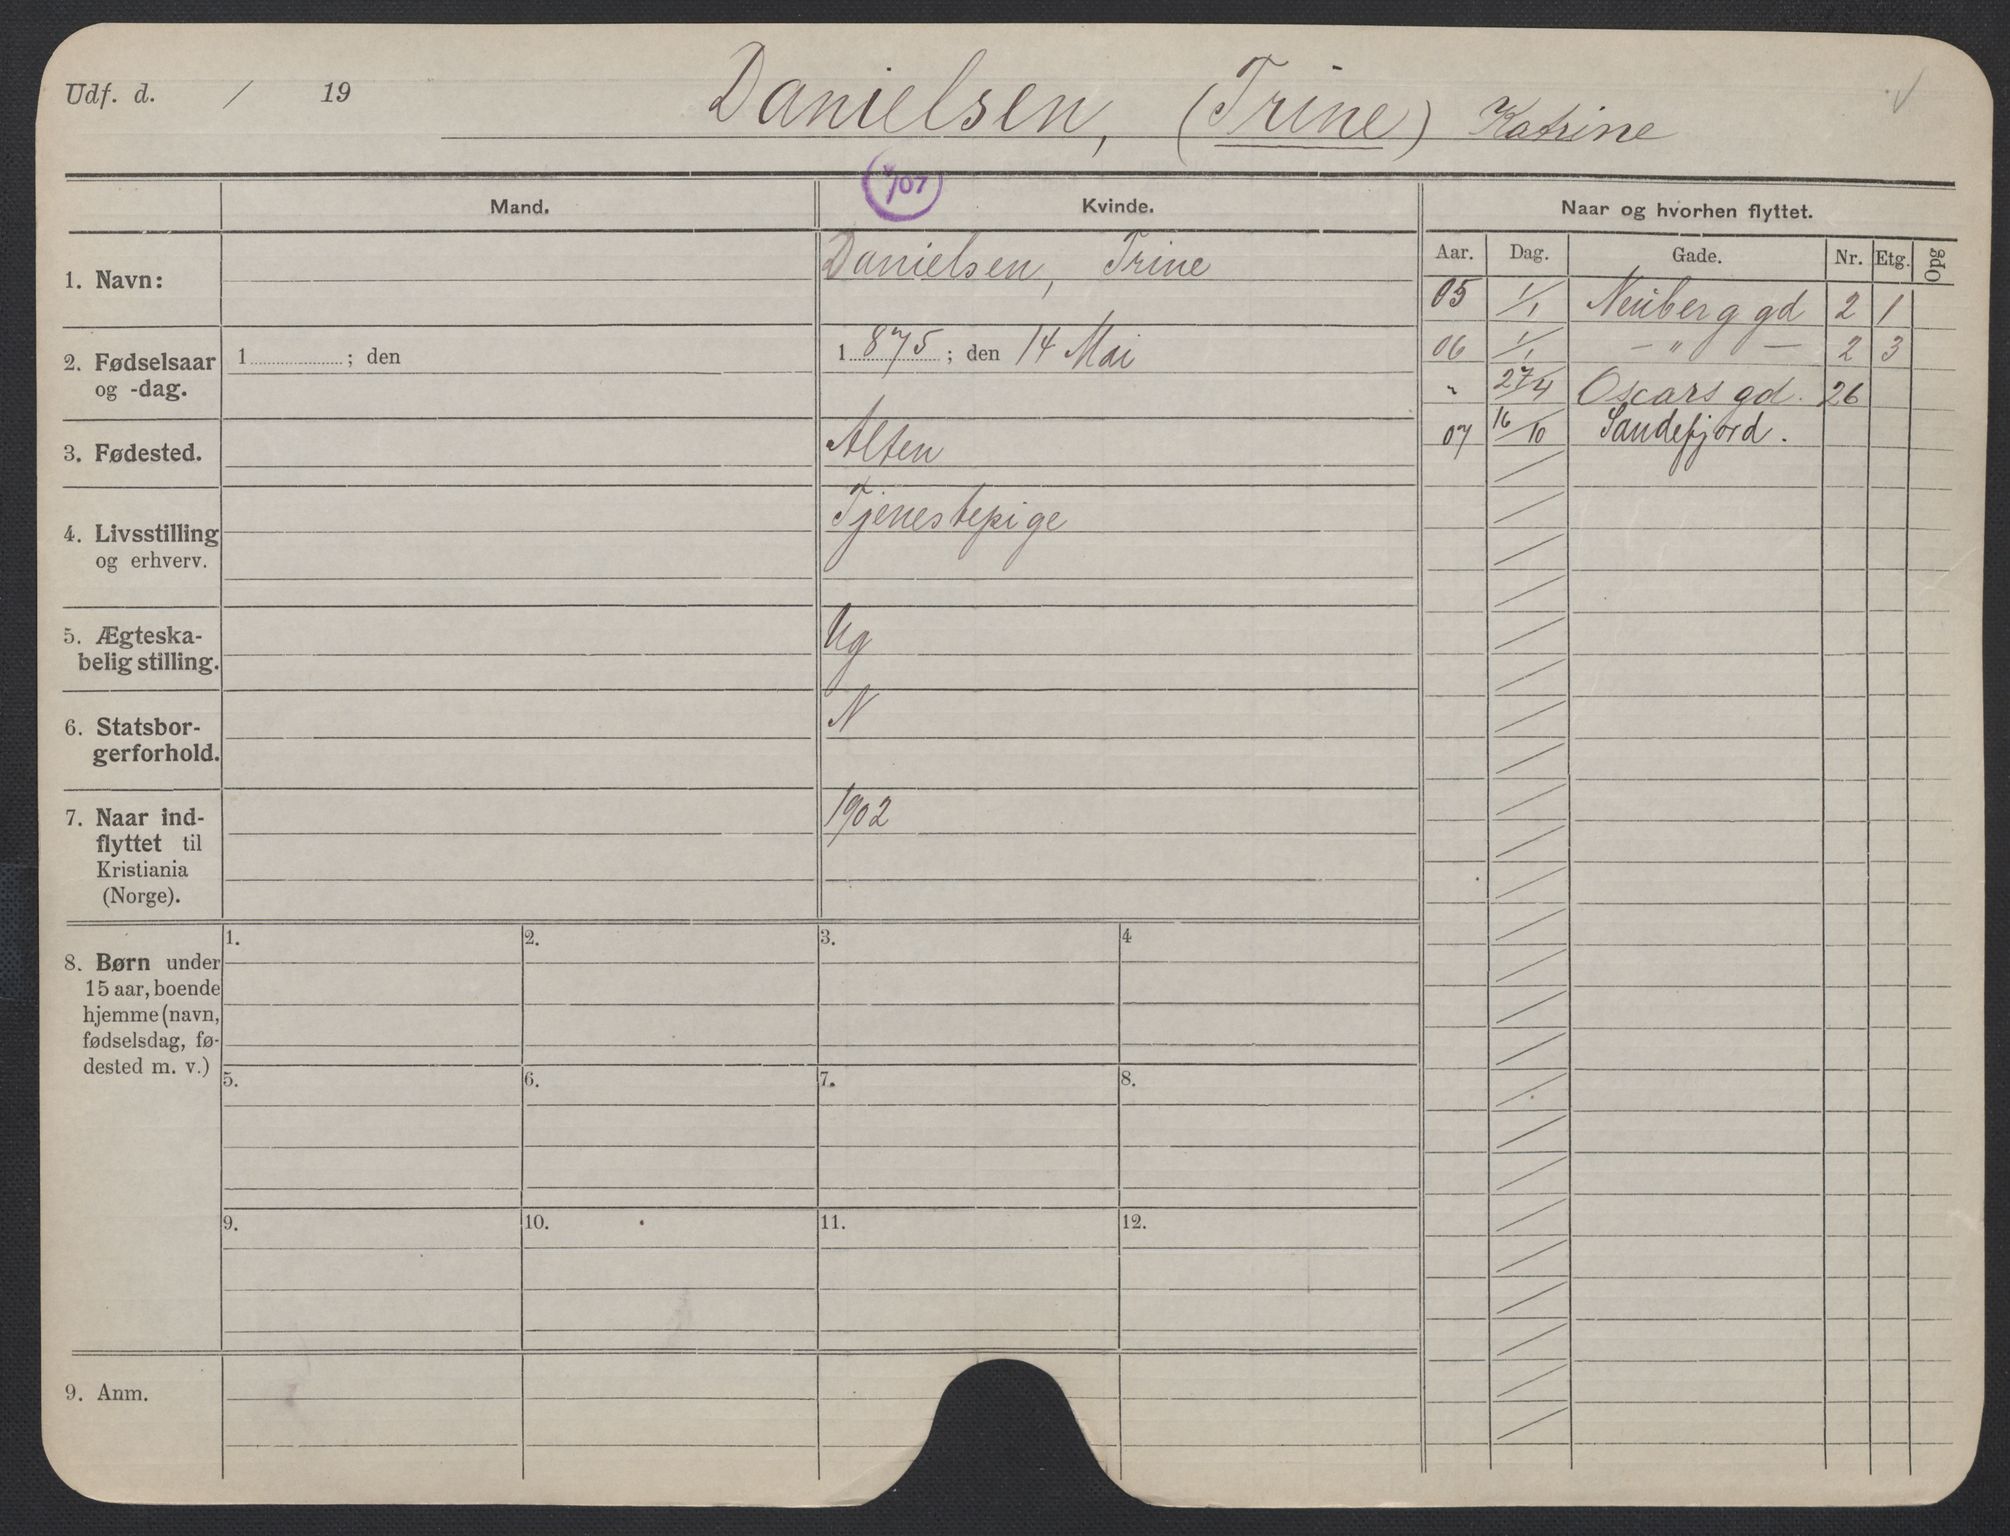 Udf. d. / 19 Danielsen, (Trine) Katrine
/07
Mand. Kvinde. Naar og hvorhen flyttet.
Aar. Dag. Gade. Nr. Etg. Opg
1. Navn: Danielsen, Trine
05 1/1 Neuberg gd 2 1
2. Fødselsaar og -dag. 1 ; den 1 875 ; den 14 Mai
06 1/1 — " — 2 3
" 27/4 Oscars gd. 26
07 16/10 Sandefjord.
3. Fødested. Alten
4. Livsstilling og erhverv. Tjenestepige
5. Ægteska-
belig stilling. Ug
6. Statsbor-
gerforhold. N
7. Naar ind-
flyttet til
Kristiania
(Norge). 1902
8. Børn under
15 aar, boende
hjemme (navn,
fødselsdag, fø-
dested m. v.)
1. 2. 3. 4
5. 6. 7. 8.
9. 10. 11. 12.
9. Anm.